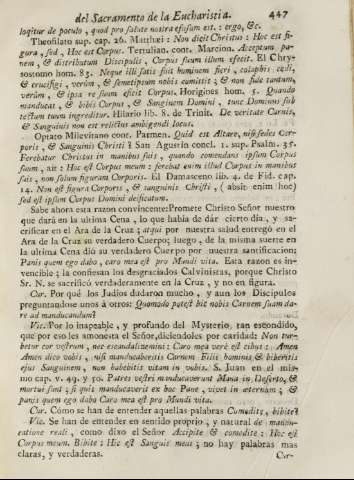 del Sacramento de la Eucharistia. 447
logitur de poculo, quod pro salute nostra efusum est: ergo, &c.
Theofilato sup. cap. 26. Matthæi: Non dixit Christus: Hoc est fi-
gura, sed, Hoc est Corpus. Tertulian. cont. Marcion. Acceptum pa-
nem, & distributum Discipulis, Corpus suum illum efecit. El Chry-
sostomo hom. 83. Neque illi satis fuit hominem fieri, colaphis cædi,
& crucifigi, verùm, & semetipsum nobis cummistit; & non fide tantum,
verùm, & ipsa re suum eficit Corpus. Horigines hom. 5. Quando
manducas, & bibis Corpus, & Sanguinem Domini, tunc Dominus sub
tectum tuum ingreditur. Hilario lib. 8. de Trinit. De veritate Carnis,
& Sanguinis non est relictus ambigendi locus.
Optato Milevitano cont. Parmen. Quid est Altare, nisi sedes Cor-
poris, & Sanguinis Christi? San Agustin concl. 1. sup. Psalm. 35.
Ferebatur Christus in manibus suis, quando comendans ipsum Corpus
suum, ait: Hoc est Corpus meum: ferebat enim illud Corpus in manibus
suis, non solum figuram Corporis. El Damasceno lib. 4. de Fid. cap.
14. Non est figura Corporis, & sanguinis Christi, (absit enim hoc)
sed est ipsum Corpus Domini deificatum.
Sabe ahora esta razon convincente: Promete Christo Señor nuestro
que dará en la ultima Cena, lo que habia de dár cierto dia, y sa-
crificar en el Ara de la Cruz; atqui por nuestra salud entregó en el
Ara de la Cruz su verdadero Cuerpo; luego, de la misma suerte en
la ultima Cena dió su verdadero Cuerpo por nuestra santificacion:
Panis quem ego dabo, caro mea est pro Mundi vita. Esta razon es in-
vencible; la confiesan los desgraciados Calvinistas, porque Christo
Sr. N. se sacrificó verdaderamente en la Cruz, y no en figura.
Cur. Por qué los Judios dudaron mucho, y aun los Discipulos
preguntandose unos á otros: Quomodo potest hic nobis Carnem suam da-
re ad manducandum?
Vic. Por lo inapeable, y profundo del Mysterio tan escondido,
que por eso les amonesta el Señor, diciendoles por caridad: Non tur-
betur cor vestrum, nec escandalizemini: Caro mea verè est cibus: Amen
Amen dico vobis, nisi manducaberitis Carnem Filii hominis & biberitis
ejus Sanguinem, non habebitis vitam in vobis. S. Juan en el mis-
mo cap. v. 49. y 50. Patres vestri manducaverunt Mana in Deserto, &
mortui sunt; si quis manducaverit ex hoc Pane, vivet in æternum; &
panis quem ego dabo Caro mea est pro Mundi vita.
Cur. Cómo se han de entender aquellas palabras Comedite, bibite?
Vic. Se han de entender en sentido proprio, y natural de mandu-
catione reali, como dixo el Señor Accipite & comedite: Hoc est
Corpus meum. Bibite: Hic est Sanguis meus; no hay palabras mas
claras, y verdaderas.
Cur-